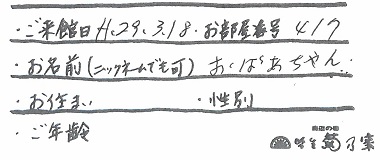 ・ご来館日 H.29.3.18・お部屋番号 417
・お名前(ニックネームでも可) おばあちゃん
・お住まい ・性別
・ご年齢